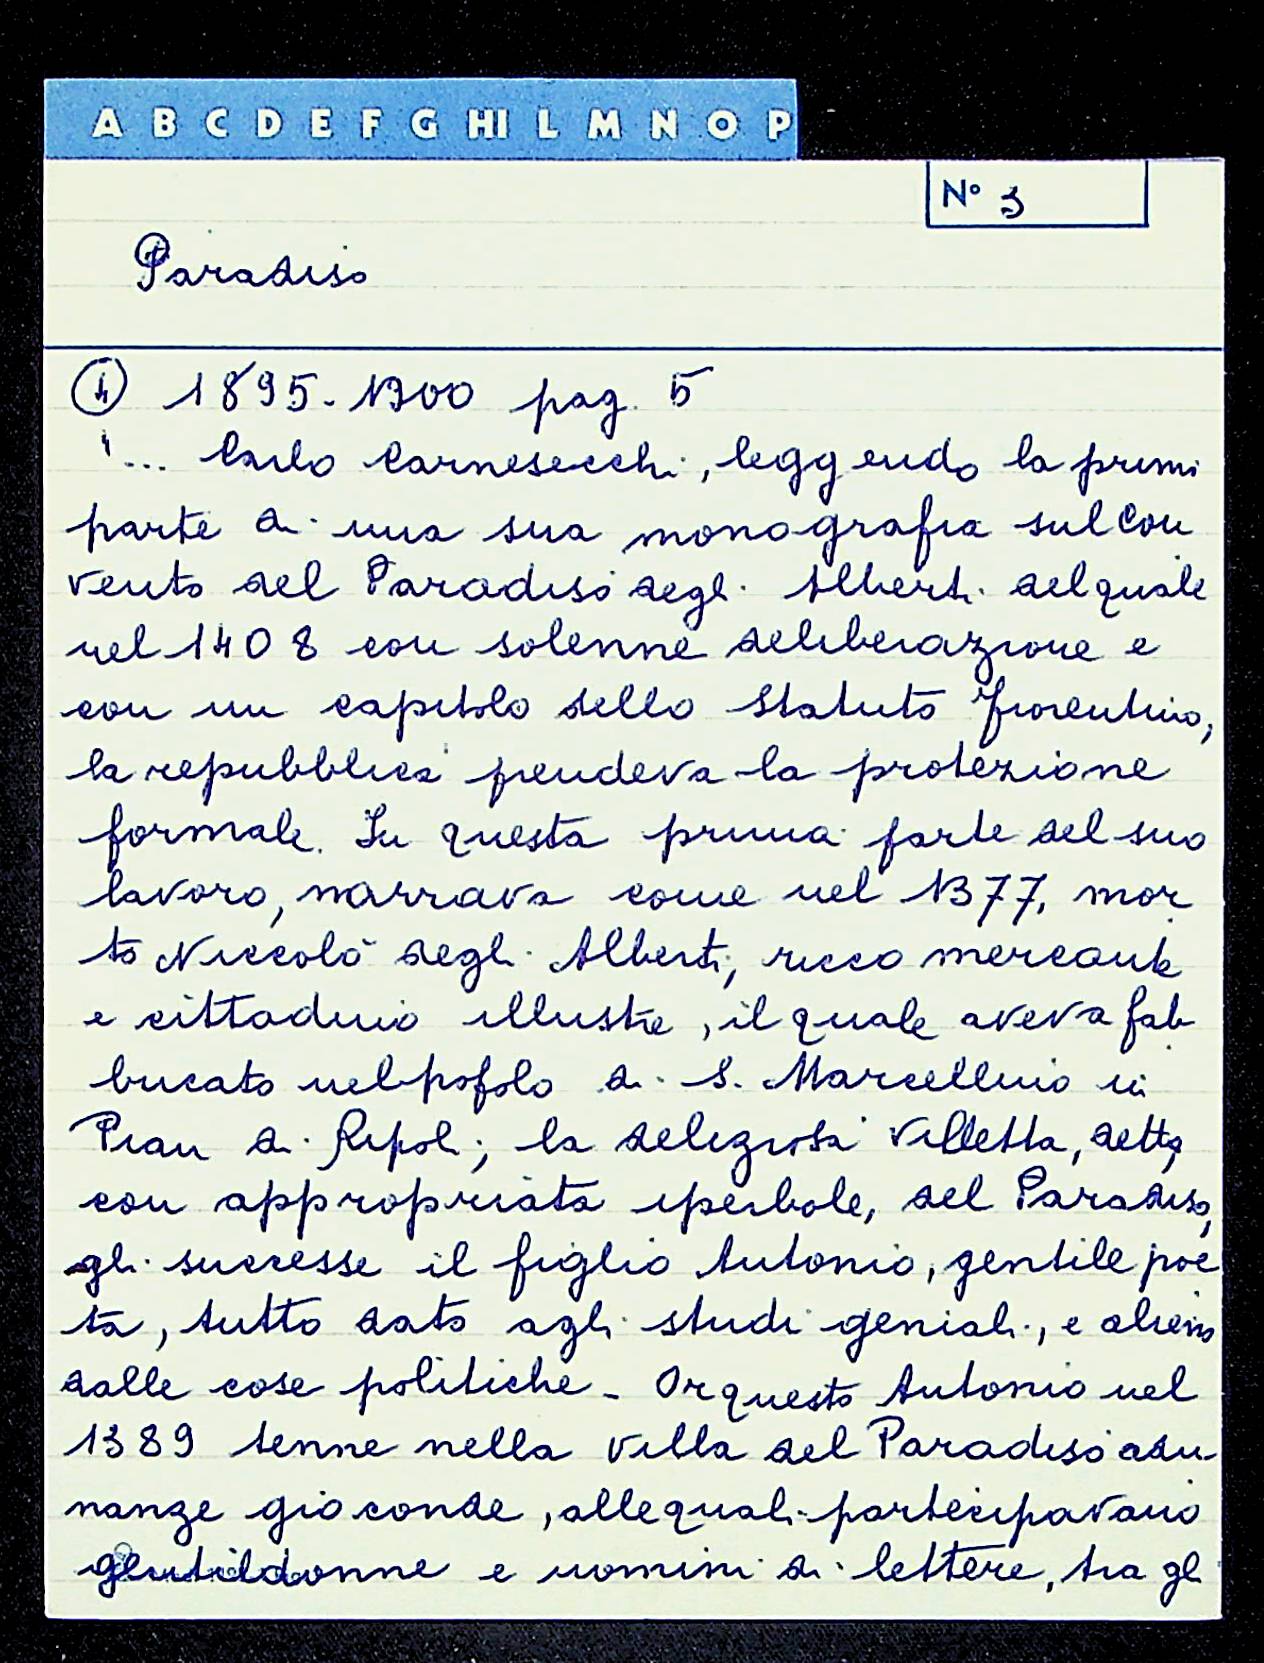 A B C D E F G HI L M N O P
N° 3
Paradiso
④ 1895-1900 pag. 5
"... Carlo Carnesecchi, leggendo la prima
parte di una sua monografia sul Con
vento del Paradiso degli Alberti del quale
nel 1408 con solenne deliberazione e
con un capitolo dello Statuto fiorentino,
la repubblica prendeva la protezione
formale. In questa prima parte del suo
lavoro, narrava come nel 1377, mor
to Niccolò degli Alberti, ricco mercante
e cittadino illustre, il quale aveva fab
bricato nel popolo di S. Marcellino in
Pian di Ripoli, la deliziosa villetta, detta,
con appropriata iperbole, del Paradiso,
gli successe il figlio Antonio, gentile poe
ta, tutto dato agli studi geniali, e alieno
dalle cose politiche - Or questo Antonio nel
1389 tenne nella villa del Paradiso adu
nanze gioconde, alle quali partecipavano
gentildonne e uomini di lettere, tra gl